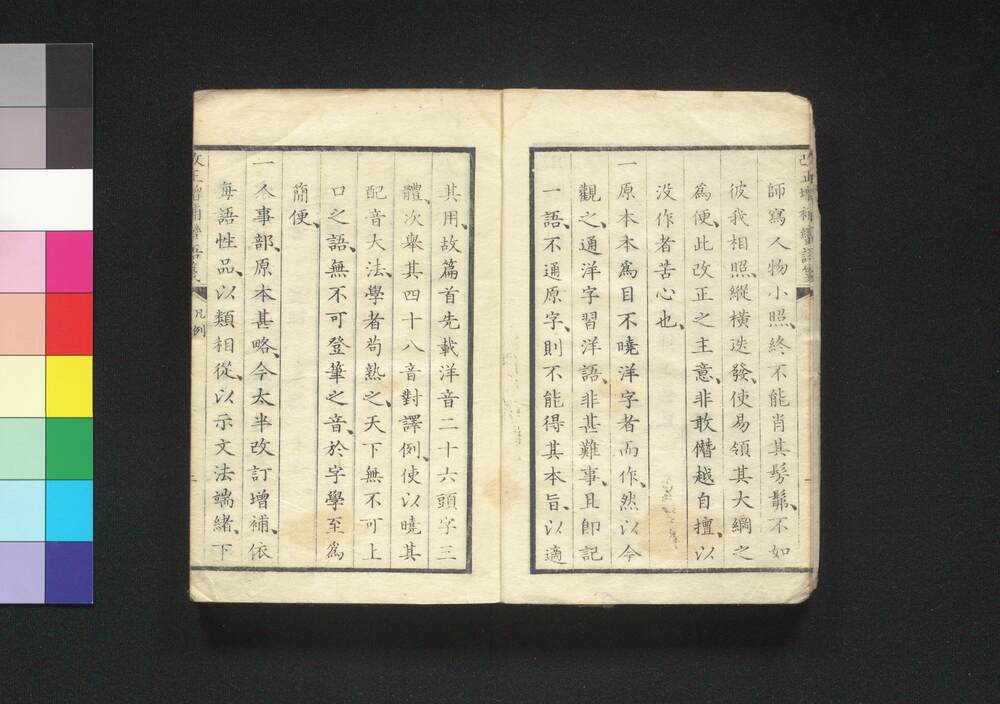 改正增補蠻語箋
師寫人物小照、終不能肖其髣髴、不如
彼我相照、縱橫迭發、使易領其大綱之
爲便、此改正之主意、非敢僭越自擅、以
没作者苦心也、
一原本本爲目不曉洋字者而作、然以今
觀之、通洋字習洋語、非甚難事、且卽記
一語、不通原字、則不能得其本旨、以適
其用、故篇首先載洋音二十六頭字三
體、次舉其四十八音對譯例、使以曉其
配音大法、學者苟熟之、天下無不可上
口之語、無不可登筆之音、於字學至爲
簡便、
一人事部、原本甚略、今太半改訂增補、依
每語性品、以類相從、以示文法端緒、下
改正增補蠻語箋
凡例